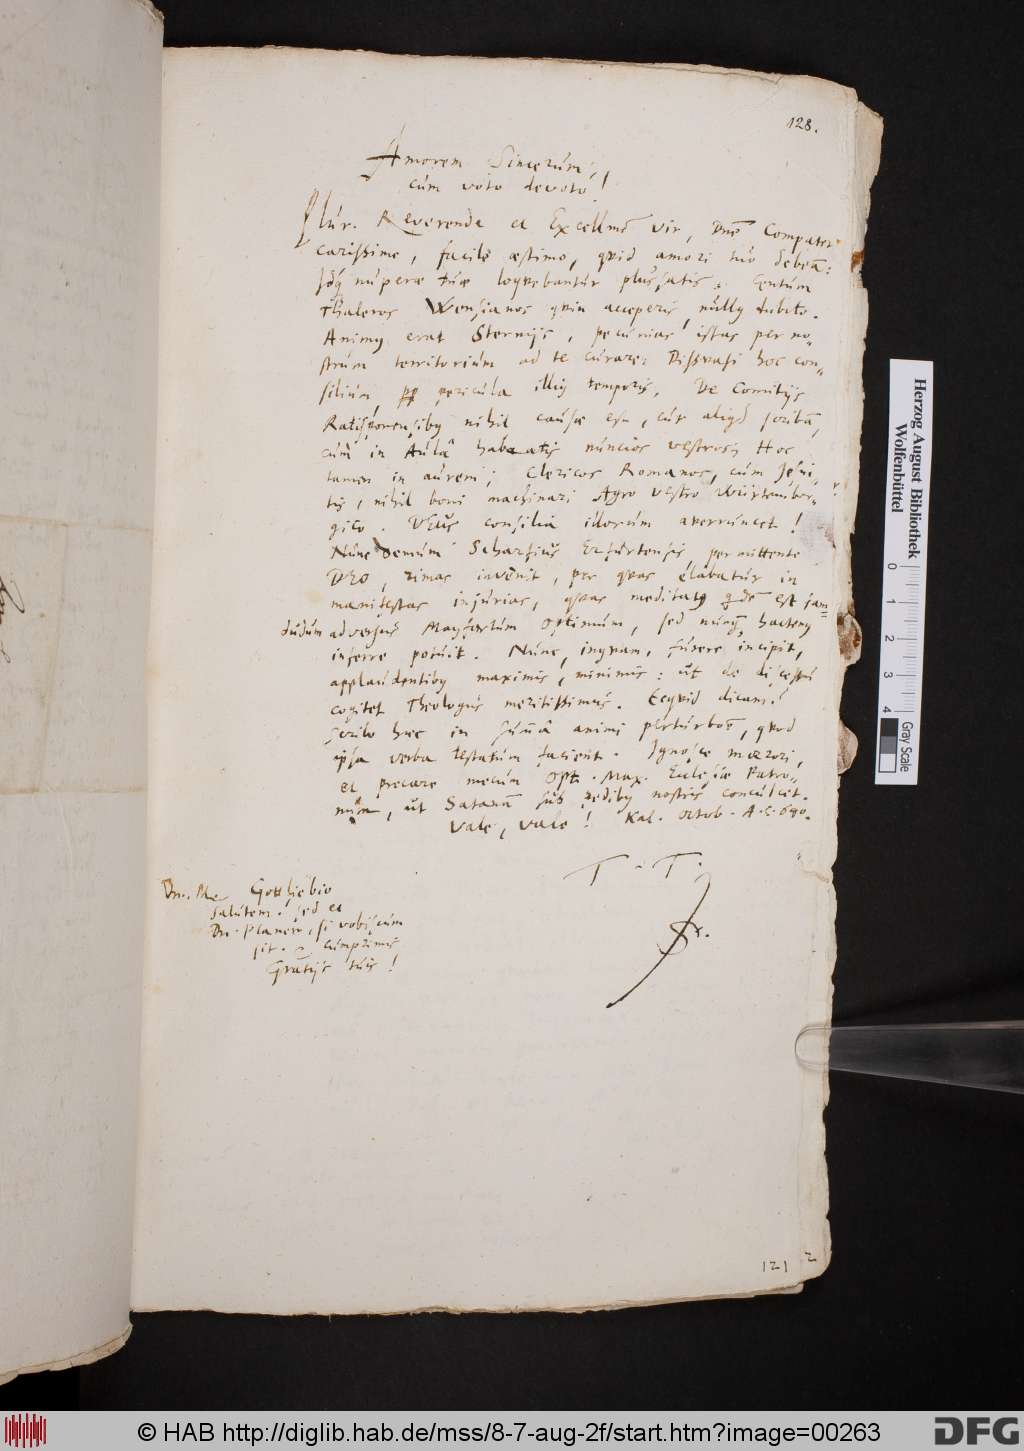 128.
Amorem Sincerum,
cum voto devoto!
Plúr. Reverende et Excellme vir, Dne Compater
carissime, facilè æstimo, qvid amori tuo debeā:
Idq; nuperæ tuæ loqvebantur plus satis. Centum
Thaleros Wensianos qvin acceperis, nullus dubito.
Animus erat Sternijs, pecunias istas per no-
strum territorium ad te curare: Dissvasi hoc con-
silium, pp pericula illius temporis. De Comitijs
Ratisponensibus nihil causæ est, cur aliqd scribā,
cum in Aulâ habeatis nuncios vestros; Hoc
tamen in aurem; Clericos Romanos, cum Jesui-
tis, nihil boni machinari Agro vestro Würtember-
gico. DEUS consilia illorum averruncet!
Nunc demum Scharfius Erfurtensis, permittente
DEO, rimas invenit, per qvas elabatur in
manifestas injurias, qvas meditatus qdē est jam
dudum adversus Mayfartum optimum, sed nunq̃ hactenus
inferre potuit. Nunc, inqvam, furere incipit,
applaudentibus maximis, minimis: ut de discessu
cogitet Theologus meritissimus. Ecqvid dicam?
Scribo hæc in summâ animi perturbōe, qvod
ipsa verba testatum facient. Ignosce mærori,
et precare mecum Opt. Max. Ecclesiæ Patro-
num, ut Satanā sub pedibus nostris conculcet.
Vale, vale! Kal. Octob. A. C. 640.
T. T.
Dn. Gottliebio
salutem. sed et
Dn. Planero, si vobiscum
sit. cumprimis
Gratijs tuis!
121
2
Herzog August Bibliothek
Wolfenbüttel
0 1 2 3 4
Gray Scale
© HAB http://diglib.hab.de/mss/8-7-aug-2f/start.htm?image=00263
DFG